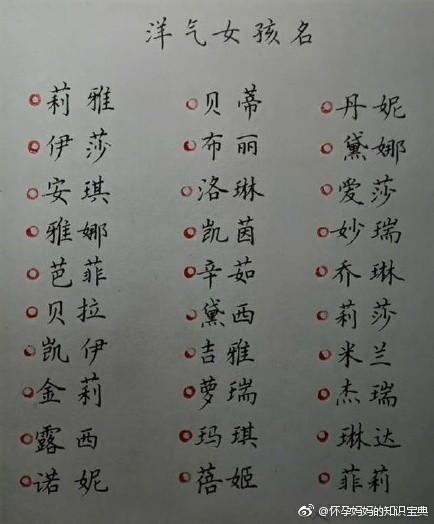 洋气女孩名
莉雅 贝蒂 丹妮
伊莎 布丽 黛娜
安琪 洛琳 爱莎
雅娜 凯茵 妙瑞
芭菲 辛茹 乔琳
贝拉 黛西 莉莎
凯伊 吉雅 米兰
金莉 萝瑞 杰瑞
露西 玛琪 琳达
诺妮 蓓姬 菲莉
@怀孕妈妈的知识宝典